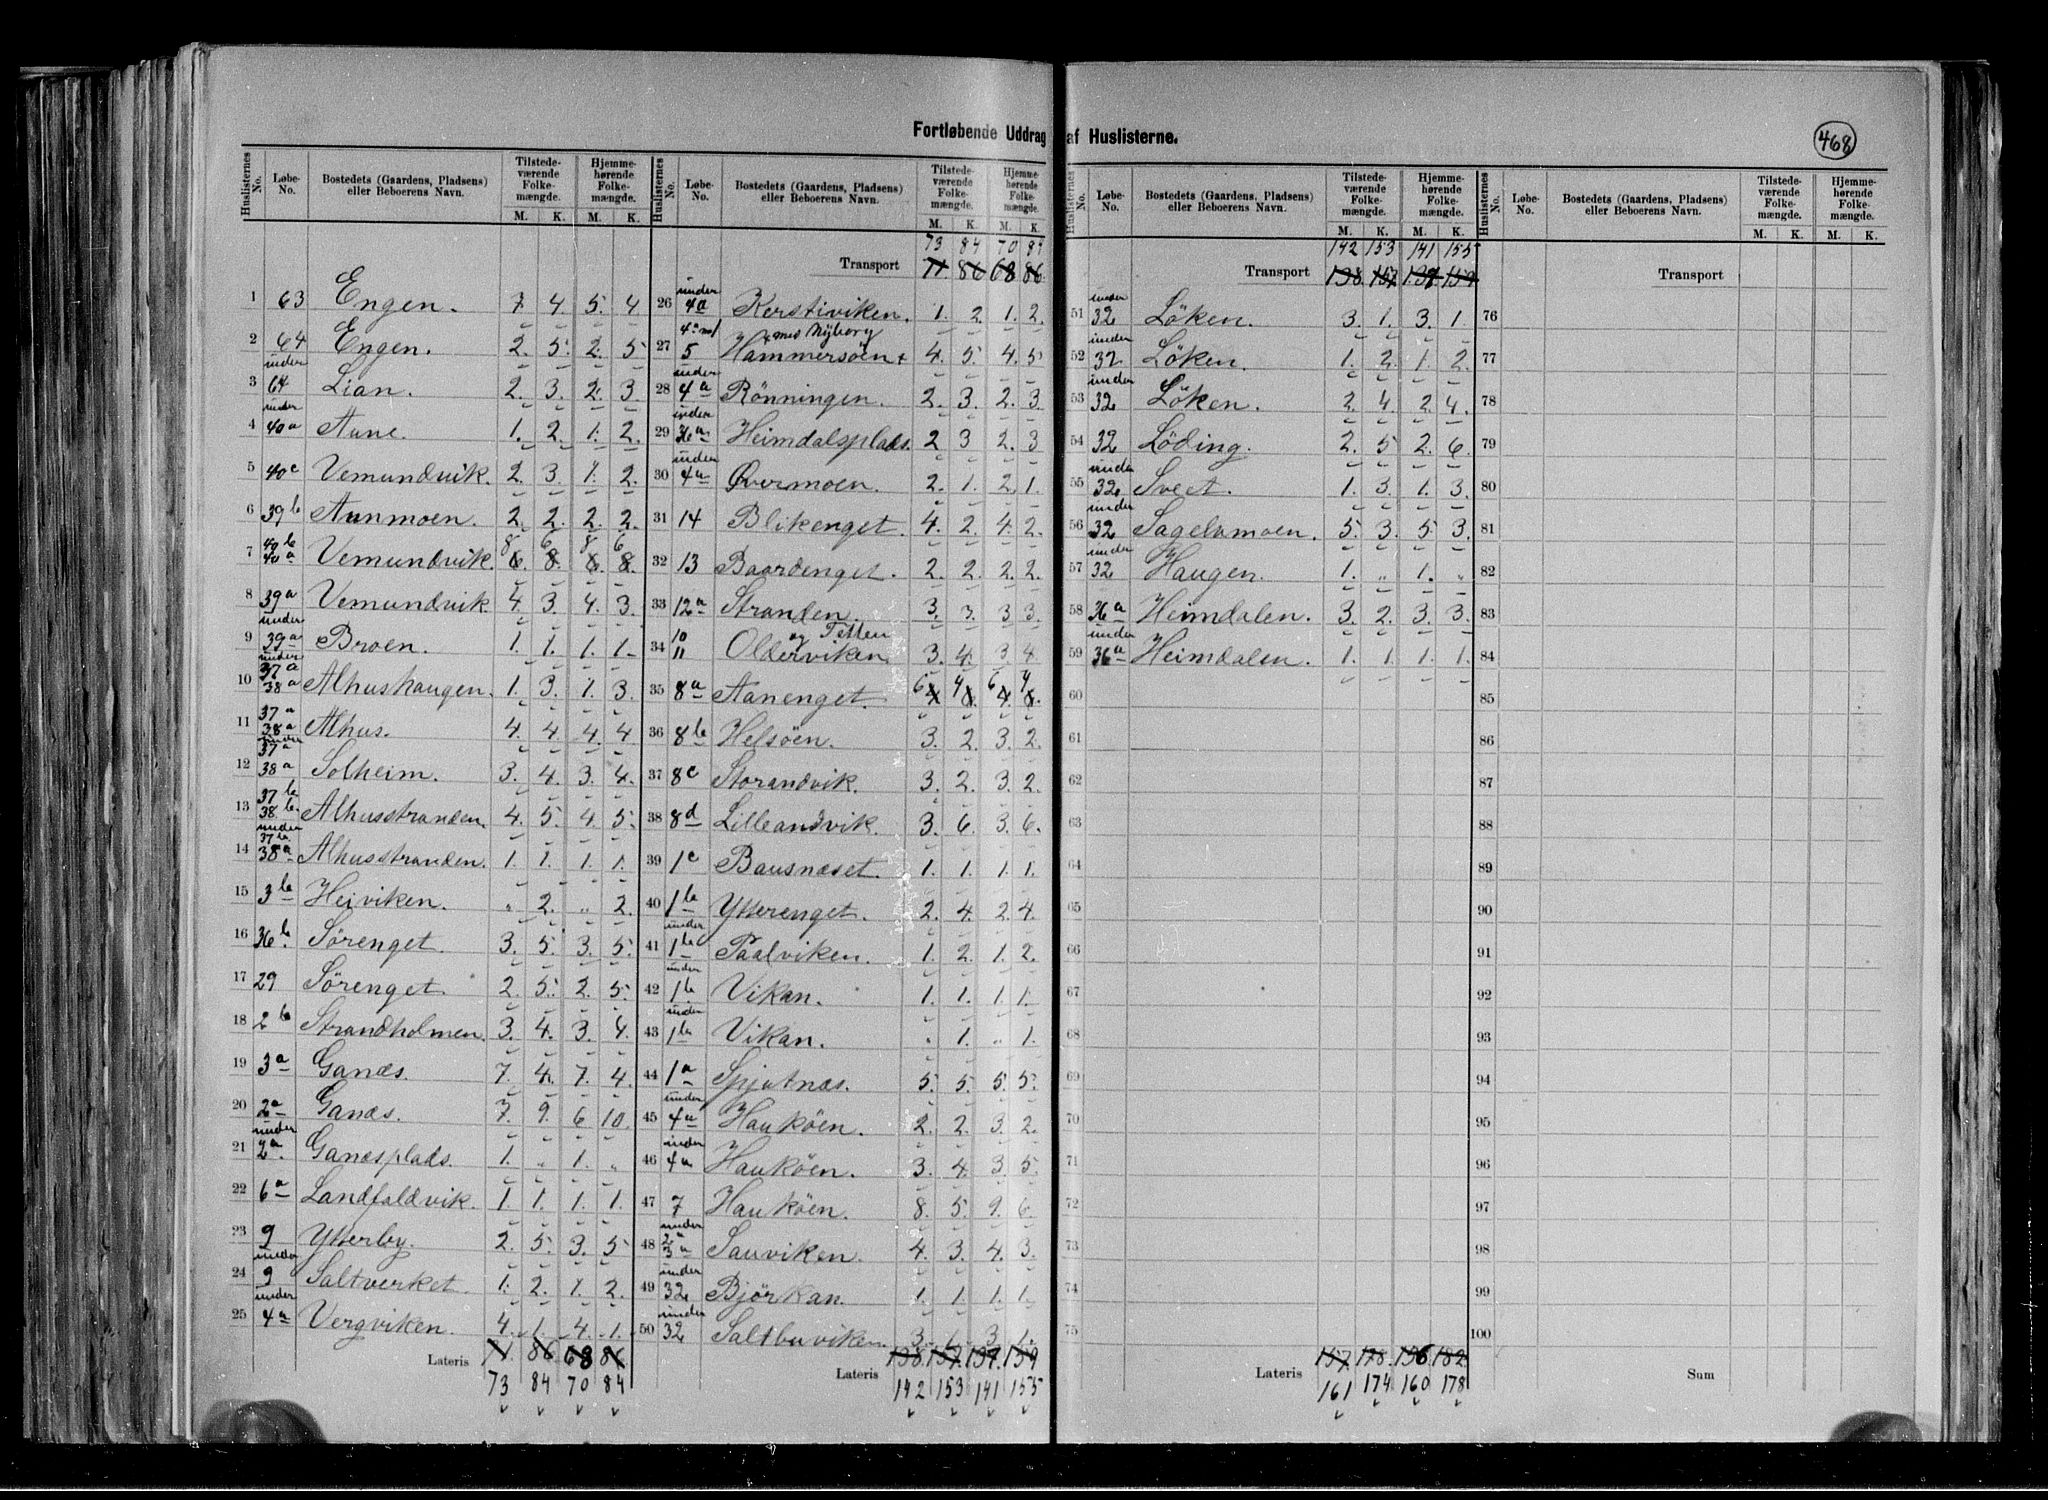 Fortløbende Uddrag af Huslisterne.
468
Huslisternes No. Løbe-No. Bostedets (Gaardens, Pladsens) eller Beboerens Navn. Tilstede-værende Folke-mængde. M. K. Hjemme-hørende Folke-mængde. M. K.
1 63 Engen. 7. 4. 5. 4
2 64 Engen. 2. 5. 2. 5
3 under 64 Lian. 2. 3. 2. 3
4 under 40a Aune. 1. 2. 1. 2.
5 40c Vemundvik. 2. 3. 1. 2.
6 39b Aunmoen. 2. 2. 2. 2.
7 40b 40a Vemundvik. 8 6 8 6
8 39a Vemundvik 4. 3. 4. 3.
9 under 39a Broen. 1. 1. 1. 1.
10 under 37a 38a Alhushaugen. 1. 3. 1. 3.
11 37a 38a Alhus. 4. 4. 4. 4
12 under 37a 38a Solheim. 3. 4. 3. 4.
13 37b 38b Alhusstranden. 4. 5. 4. 5.
14 under 37a 38a Alhusstranden. 1. 1. 1. 1.
15 3b Heiviken. " 2. " 2.
16 36b. Sörenget. 3. 5. 3. 5.
17 29 Sörenget. 2. 5. 2. 5.
18 2b Strandholmen. 3. 4. 3. 4.
19 3a Ganæs. 7. 4. 7. 4.
20 2a Ganæs. 7. 9. 6 10.
21 under 2a. Ganæsplads. 1. " 1. "
22 6a Landfaldvik. 1. 1. 1. 1.
23 9 Ytterby. 2. 5. 3. 5
24 under 9 Saltverket. 1. 2. 1. 2.
25 under 4a Vergviken. 4. 1. 4. 1.
Lateris 71 86 68 86
73 84 70 84
Huslisternes No. Løbe-No. Bostedets (Gaardens, Pladsens) eller Beboerens Navn. Tilstede-værende Folke-mængde. M. K. Hjemme-hørende Folke-mængde. M. K.
73 84 70 84
Transport 71 86 68 86
26 under 4a Kerstiviken. 1. 2. 1. 2.
27 5 Hammersöen + med Nyborg 4. 5. 4. 5
28 under 4a Rönningen. 2. 3. 2. 3.
29 under 36a Heimdalsplads. 2 3 2. 3
30 under 4a Øvermoen. 2. 1. 2. 1.
31 14 Blikenget. 4. 2. 4. 2.
32 13 Baardenget. 2. 2. 2. 2.
33 12a Stranden. 3. 3. 3. 3.
34 10 11 Olderviken og Tetten 3. 4. 3. 4.
35 8a Aanenget. 6 4 6 4
36 8b Helsöen. 3. 2. 3. 2.
37 8c Storandvik. 3. 2. 3. 2.
38 8d Lilleandvik. 3. 6. 3. 6.
39 1c Bausnæset. 1. 1. 1. 1.
40 1b Ytterenget. 2. 4. 2. 4.
41 under 1b Paalviken. 1. 2. 1. 2.
42 under 1b Vikan. 1. 1. 1. 1.
43 under 1b Vikan. " 1. " 1.
44 1a Spjutnæs. 5. 5. 5. 5.
45 under 4a Hauköen. 2. 2. 3. 2.
46 under 4a Hauköen. 3. 4. 3. 5.
47 7 Hauköen. 8. 5. 9. 6.
48 under 2a 3a Sauviken. 4. 3. 4. 3.
49 under 32 Björkan. 1. 1. 1. 1.
50 under 32 Saltbuviken. 3. 1. 3. 1.
Lateris 138. 157. 137. 159
142 153 141 155
Huslisternes No. Løbe-No. Bostedets (Gaardens, Pladsens) eller Beboerens Navn. Tilstede-værende Folke-mængde. M. K. Hjemme-hørende Folke-mængde. M. K.
142 153 141 155
Transport 138. 157. 139. 159
51 under 32 Löken. 3. 1. 3. 1.
52 under 32 Löken. 1. 2. 1. 2.
53 under 32 Löken. 2. 4. 2. 4.
54 32 Löding. 2. 5. 2. 6.
55 under 32 Sveet. 1. 3. 1. 3.
56 under 32 Sagelvmoen. 5. 3. 5. 3.
57 under 32 Haugen. 1. " 1. "
58 36a Heimdalen. 3. 2. 3. 3.
59 under 36a Heimdalen. 1. 1. 1. 1.
60
61
62
63
64
65
66
67
68
69
70
71
72
73
74
75
Lateris 157. 178. 156. 182
161 174 160 178
Huslisternes No. Løbe-No. Bostedets (Gaardens, Pladsens) eller Beboerens Navn. Tilstede-værende Folke-mængde. M. K. Hjemme-hørende Folke-mængde. M. K.
Transport
76
77
78
79
80
81
82
83
84
85
86
87
88
89
90
91
92
93
94
95
96
97
98
99
100
Sum